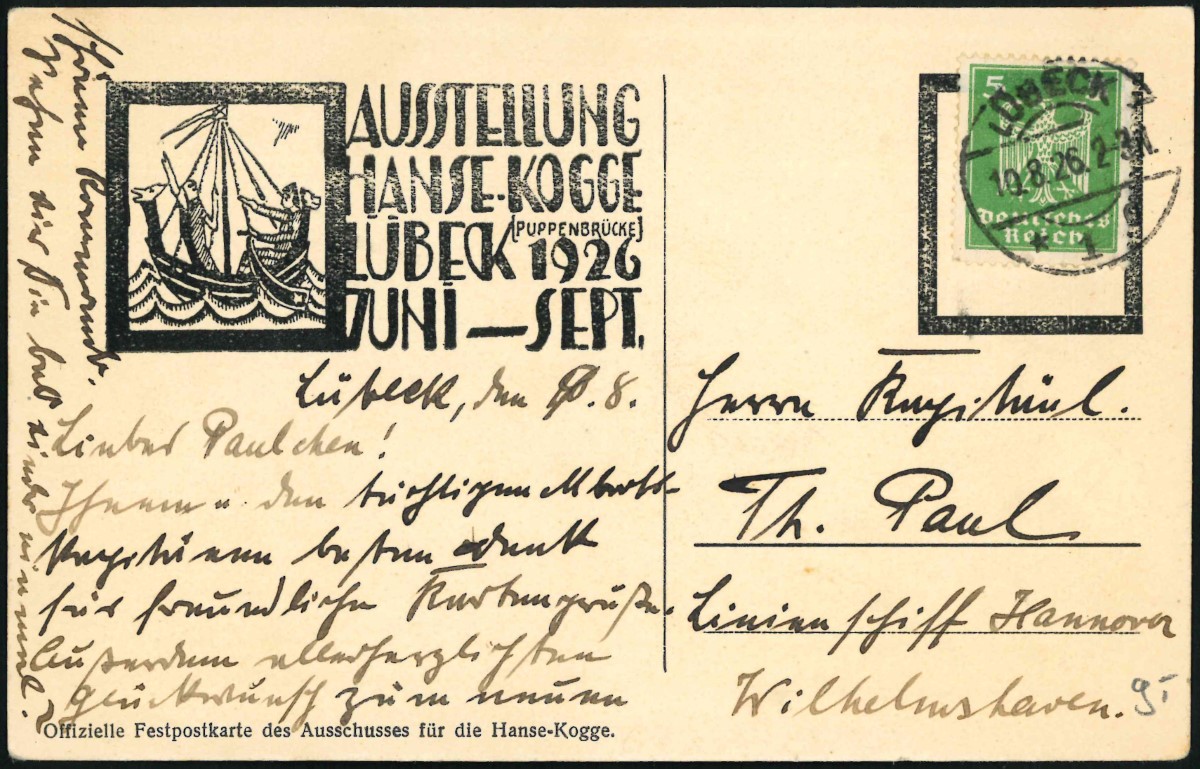 AUSSTELLUNG
HANSE-KOGGE
LÜBECK [PUPPENBRÜCKE] 1926
JUNI — SEPT.
5
LÜBECK
10.8.26. 2-3N.
Deutsches
Reich
* 1
Lübeck, den 10. 8.
Liebes Paulchen!
Ihnen u. den tüchtigen
Kapitänen besten Dank
für freundliche Kartengrüße.
Außerdem allerherzlichsten
Glückwunsch zum neuen
schönen Kommando.
Sehen wir Sie bald wieder einmal?
Offizielle Festpostkarte des Ausschusses für die Hanse-Kogge.
Herrn
Th. Paul
Linienschiff Hannover
Wilhelmshaven.